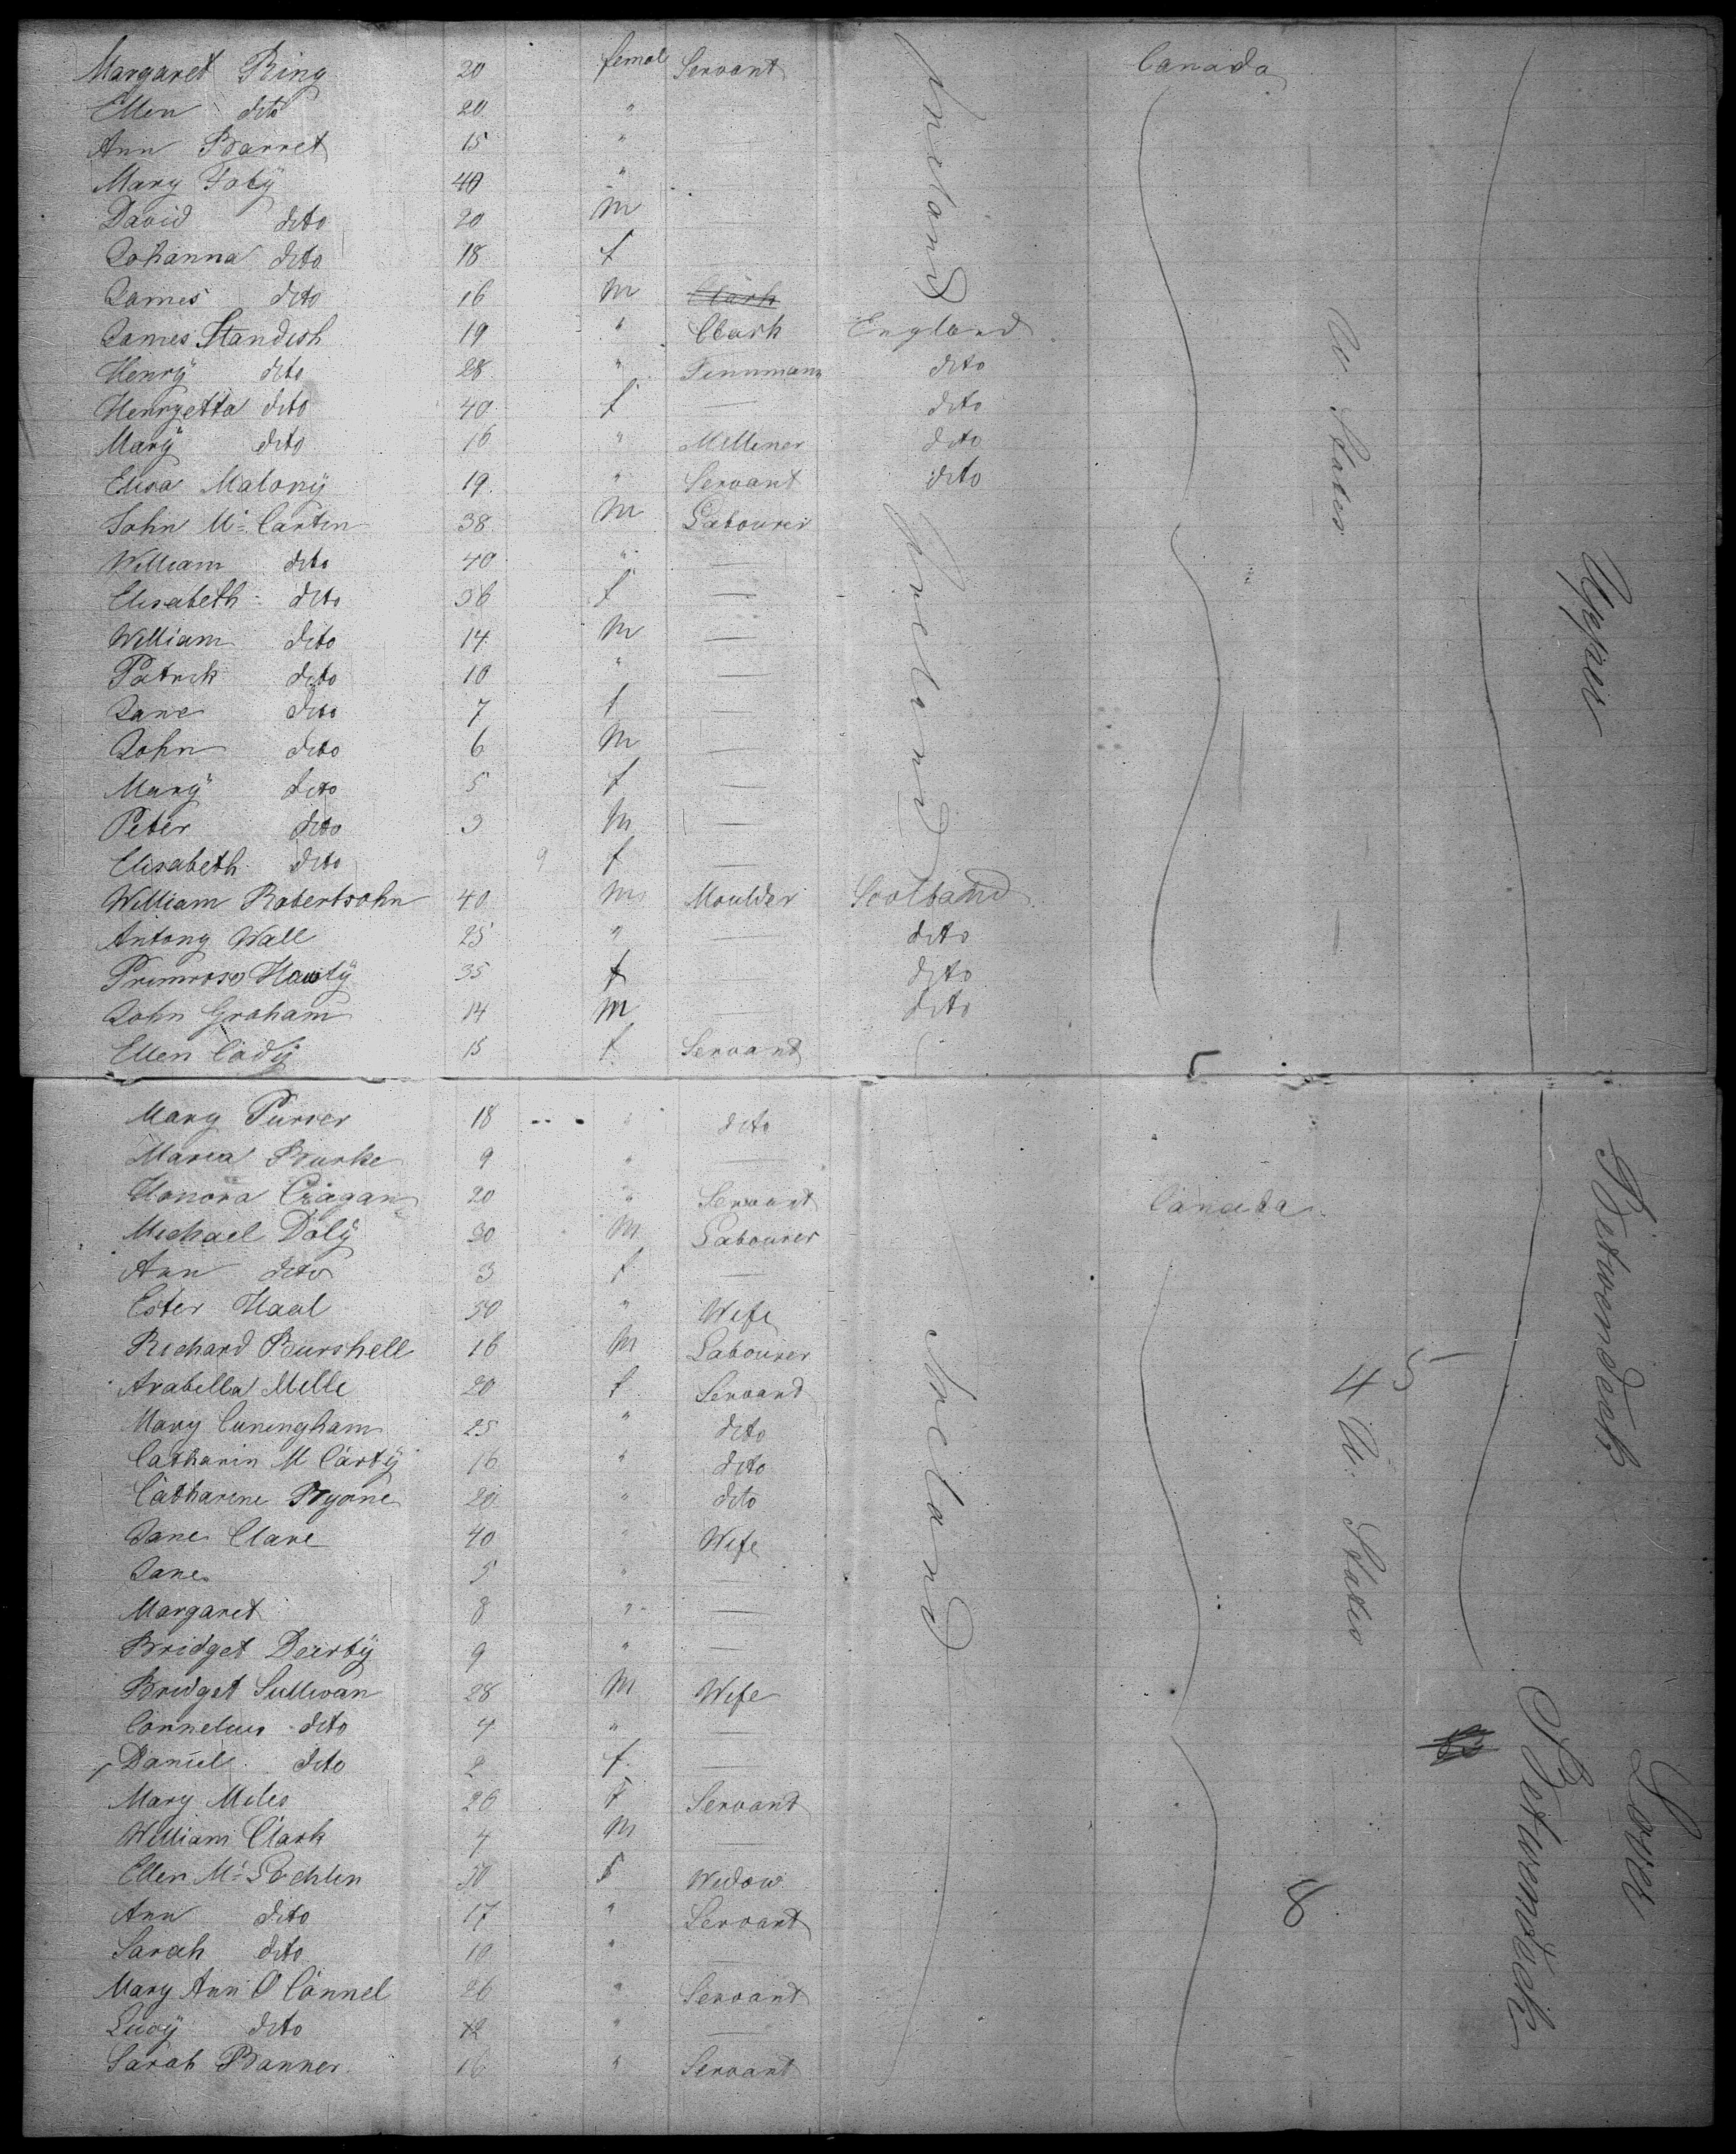 Margaret Ring 20 female Servant Canada
Ellen dito 20 "
Ann Barret 15 "
Mary Foty 40 "
David dito 20 m
Johanna dito 18 f
James dito 16 m Clark
Ireland
James Standish 19 " Clark England
Henry dito 28 " dito
Henryetta dito 40 f — dito
Mary dito 16 " Milliner dito
Elisa Malony 19 " Servant dito
U. States
John Mc Cartin 38 m Labourer
William dito 40 " —
Elisabeth dito 36 f —
William dito 14 m —
Patrik dito 10 " —
Jane dito 7 f —
John dito 6 m —
Mary dito 5 f —
Peter dito 3 m —
Elisabeth dito 9 f —
Ireland
Upper
William Robertsohn 40 m Moulder Scotland
Antony Wall 25 " — dito
Primrose 35 f dito
John Graham 14 m dito
Ellen Cody 15 f Servant
5
Mary Purrer 18 " dito
Maria Burke 9 " —
Honora 20 " Servant Canada
Michael Doly 30 m Labourer
Ann dito 3 f —
Ester Haal 30 " Wife
Richard Burshell 16 m Labourer
Arabella Mille 20 f Servand
Mary Cuningham 25 " dito
Catharin M Carty 16 " dito
Catharine Byrne 20 " dito
Jane Clare 40 " Wife
Jane 5 " —
Margaret 8 " —
Bridget Deirty 9 " —
Ireland
45
U. States
Betwendeck
Bridget Sullivan 28 m Wife
Cornelius dito 4 " —
Daniel dito 2 f —
Mary Miles 26 f Servant
William Clark 4 m —
Ellen Mc Lochlin 50 f Widow
Ann dito 17 " Servant
Sarah dito 10 "
Mary Ann O Connel 26 " Servand
Lucy dito 12 " —
Sarah Banner 16 " Servant
8
Lower
Betwendeck